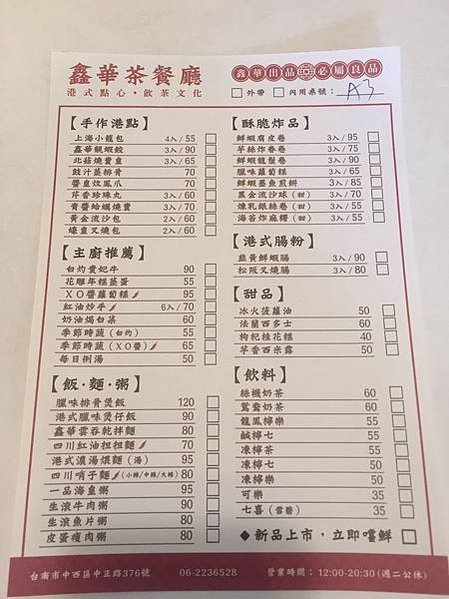 鑫華茶餐廳
港式點心·飲茶文化
鑫華出品 必屬良品
外帶 內用桌號: A3
【手作港點】
上海小籠包 4入/55
鑫華靚蝦餃 3入/90
北菇燒賣皇 3入/65
豉汁蒸排骨 70
醬皇炆鳳爪 70
芹香珍珠丸 3入/60
青醬蛤蠣燒賣 3入/70
黃金流沙包 2入/60
蠔皇叉燒包 2入/60
【主廚推薦】
白灼貴妃牛 90
花雕年糕蒸蛋 55
ＸＯ醬蘿蔔糕 95
紅油炒手 6入/70
奶油焗白菜 60
季節時蔬(白灼) 55
季節時蔬(ＸＯ醬) 65
每日例湯 50
【飯·麵·粥】
臘味排骨煲飯 120
港式臘味煲仔飯 90
鑫華雲吞乾拌麵 80
四川紅油担担麵 70
港式濃湯煨麵(湯) 95
四川哨子麵(小辣/中辣/大辣) 80
一品海皇粥 95
生滾牛肉粥 90
生滾魚片粥 80
皮蛋瘦肉粥 80
【酥脆炸品】
鮮蝦腐皮卷 3入/95
芋絲炸春卷 3入/75
鮮蝦龍鬚卷 3入/90
臘味蘿蔔糕 3入/65
鮮蝦墨魚煎餅 3入/85
黑金流沙球(甜) 3入/70
煉乳銀絲卷(甜) 3入/55
海苔炸麻糬(甜) 3入/55
【港式腸粉】
韭黃鮮蝦腸 3入/90
松阪叉燒腸 3入/80
【甜品】
冰火菠蘿油 50
法蘭西多士 60
枸杞桂花糕 40
芋香西米露 50
【飲料】
絲襪奶茶 60
鴛鴦奶茶 60
龍鳳檸樂 55
鹹檸七 55
凍檸茶 55
凍檸七 50
凍檸樂 50
可樂 35
七喜(雪碧) 35
◆新品上市，立即嚐鮮
台南市中西區中正路376號 06-2236528 營業時間：12:00-20:30(週二公休)